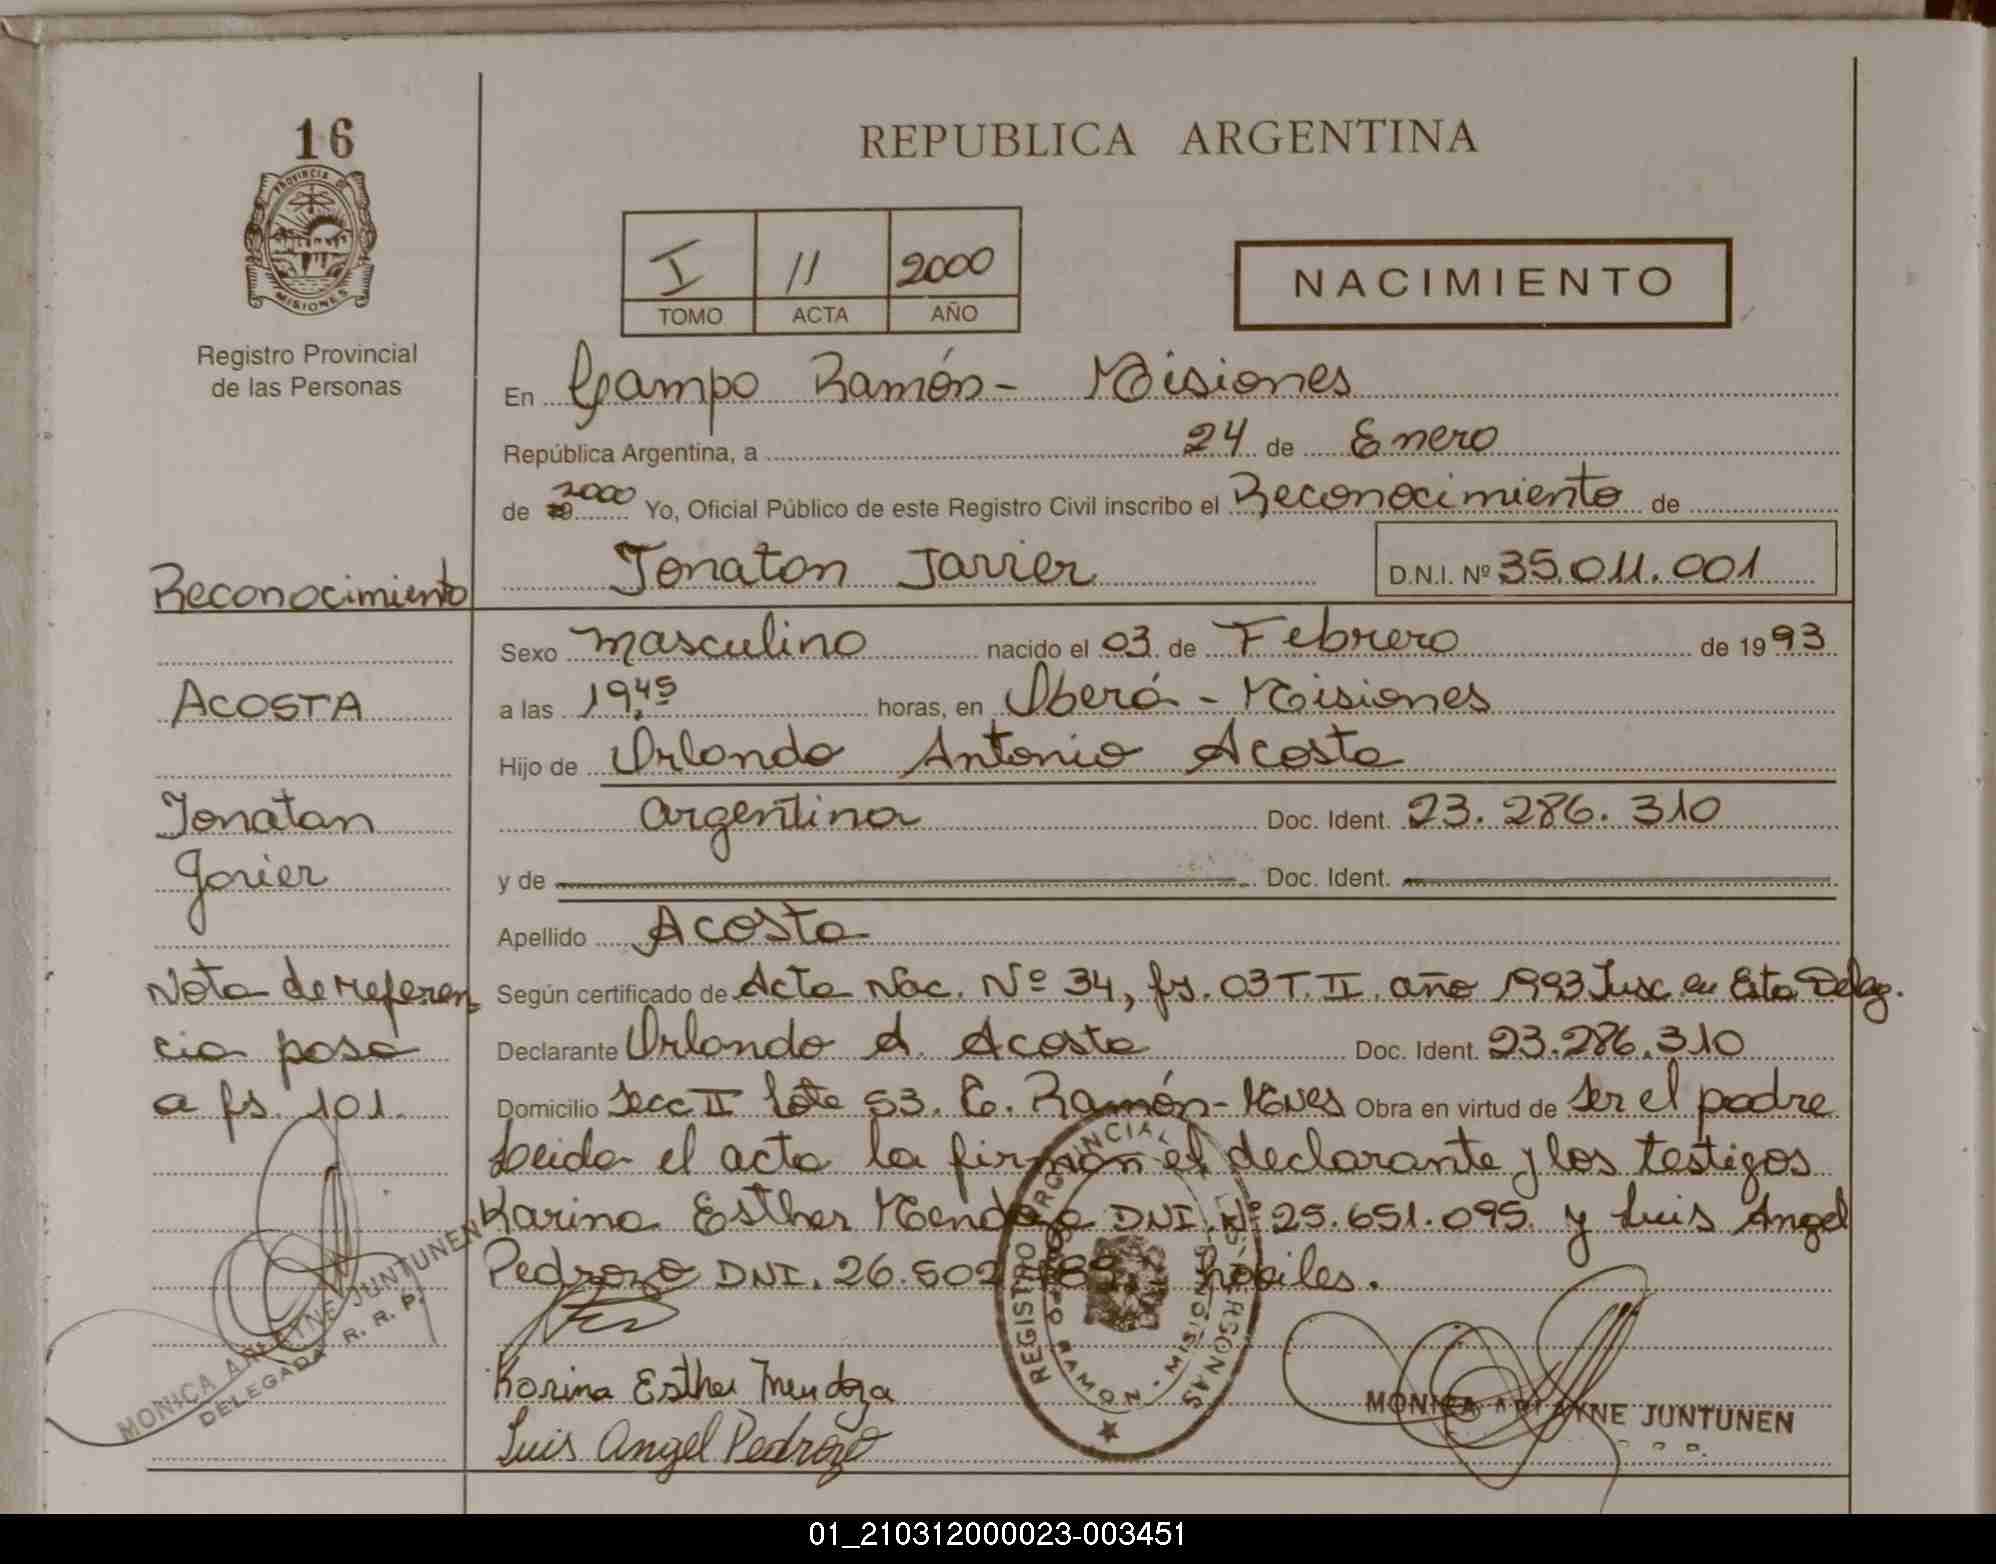 16
PROVINCIA DE
MISIONES
Registro Provincial
de las Personas
REPUBLICA ARGENTINA
I 11 2000
TOMO ACTA AÑO
NACIMIENTO
En Campo Ramón - Misiones
República Argentina, a 24 de Enero
de 2000 Yo, Oficial Público de este Registro Civil inscribo el Reconocimiento de
Jonatan Javier D.N.I. Nº 35.011.001
Sexo masculino nacido el 03 de Febrero de 1993
a las 19,45 horas, en Oberá - Misiones
Hijo de Orlando Antonio Acosta
argentina Doc. Ident. 23.286.310
y de Doc. Ident.
Apellido Acosta
Según certificado de Acta Nac. Nº 34, fs. 03 T. II año 1993 Insc. en Esta Deleg.
Declarante Orlando A. Acosta Doc. Ident. 23.286.310
Domicilio Secc II Lote 53. C. Ramón - Mnes Obra en virtud de ser el padre
Leida el acta la firman el declarante y los testigos
Karina Esther Mendoza DNI. Nº 25.651.095 y Luis Angel
Pedrozo DNI. 26.502 habiles.
Karina Esther Mendoza
Luis Angel Pedrozo
REGISTRO PROVINCIAL DE LAS PERSONAS
CAMPO RAMON - MISIONES
MONICA ARLEYNE JUNTUNEN
Reconocimiento
ACOSTA
Jonatan
Javier
Nota de referen
cia pasa
a fs. 101.
MONICA ARLEYNE JUNTUNEN
DELEGADA R. R. P.
01_210312000023-003451